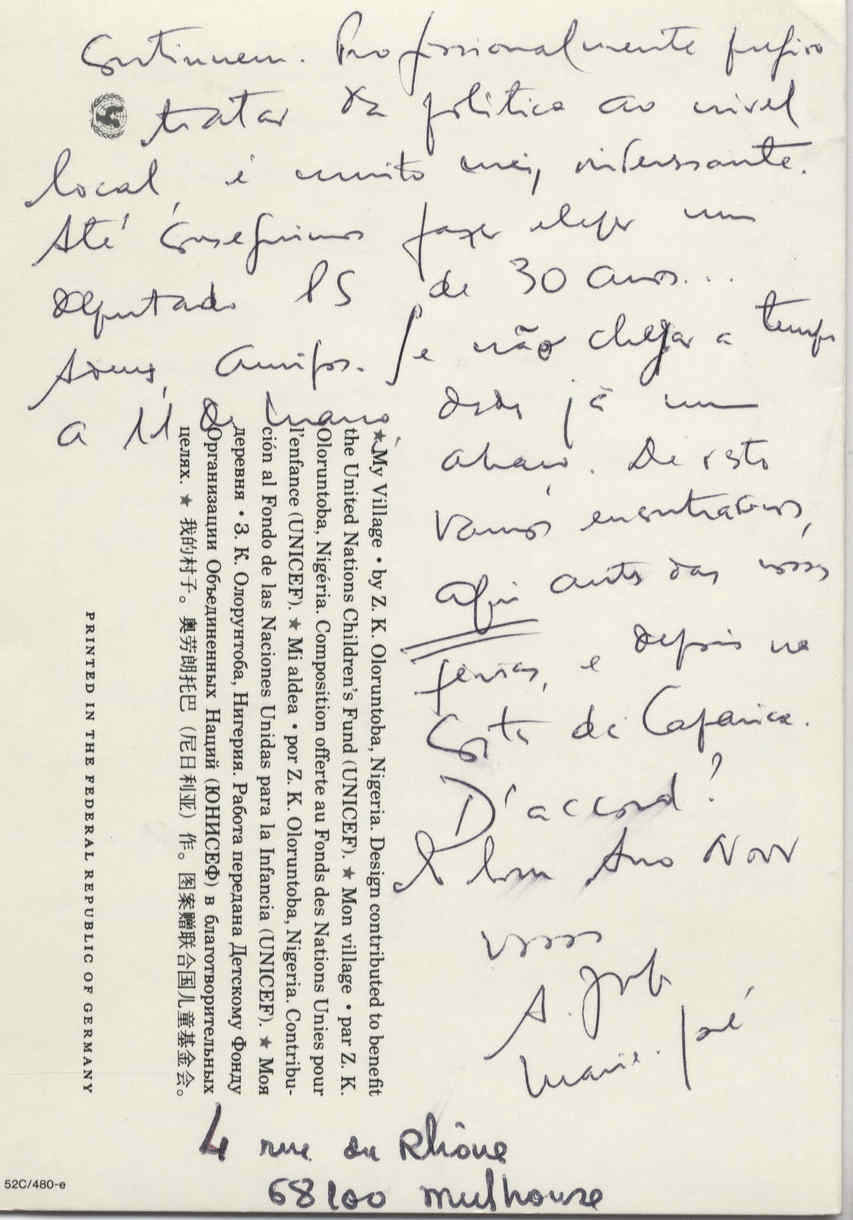 Continuem. Profissionalmente prefiro
tratar da política ao nível
local, é muito mais interessante.
Até conseguimos fazer eleger um
deputado PS de 30 anos...
Adeus, Amigos. Se não chegar a tempo
a 11 de
desde já um
abraço. De resto
vamos encontrarmos,
aqui antes das vossas
ferias, e depois na
Costa da Caparica.
D'accord?
E bom Ano Novo
vosso
A.
Marie-José
4 rue du Rhône
68100 Mulhouse
★ My Village • by Z. K. Oloruntoba, Nigeria. Design contributed to benefit
the United Nations Children's Fund (UNICEF). ★ Mon village • par Z. K.
Oloruntoba, Nigéria. Composition offerte au Fonds des Nations Unies pour
l'enfance (UNICEF). ★ Mi aldea • por Z. K. Oloruntoba, Nigeria. Contribu-
ción al Fondo de las Naciones Unidas para la Infancia (UNICEF). ★ Моя
деревня • З. К. Олорунтоба, Нигерия. Работа передана Детскому Фонду
Организации Объединенных Наций (ЮНИСЕФ) в благотворительных
целях. ★ 我的村子。奥劳朗托巴（尼日利亚）作。图案赠联合国儿童基金会。
PRINTED IN THE FEDERAL REPUBLIC OF GERMANY
52C/480-e